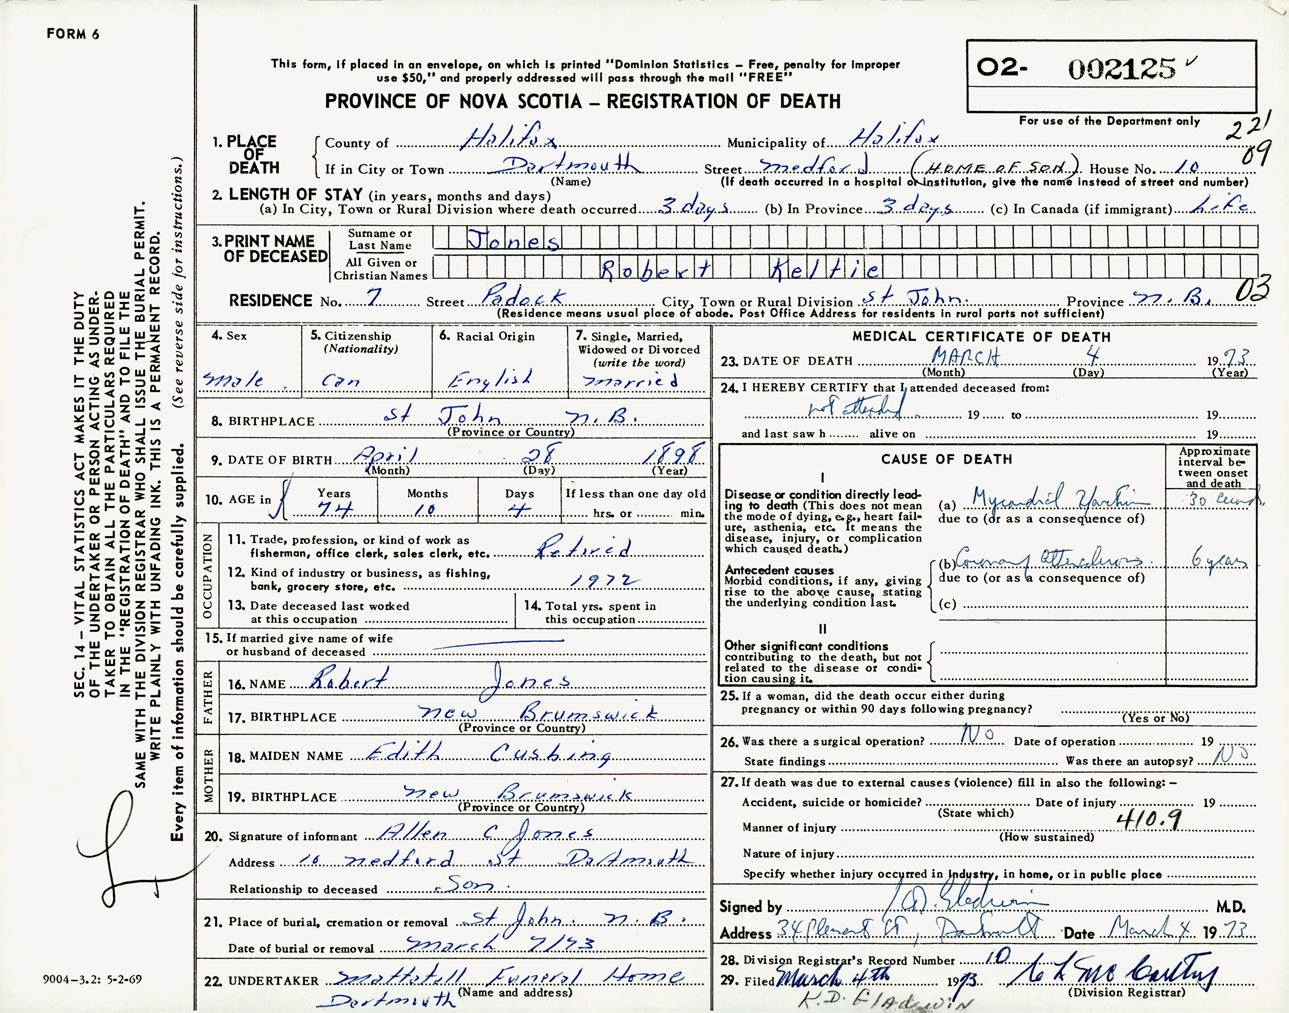 FORM 6
This form, if placed in an envelope, on which is printed "Dominion Statistics – Free, penalty for improper
use $50," and properly addressed will pass through the mail "FREE"
PROVINCE OF NOVA SCOTIA – REGISTRATION OF DEATH
O2- 002125
For use of the Department only
221
09
1. PLACE OF DEATH
County of Halifax Municipality of Halifax
If in City or Town Dartmouth Street medford (HOME OF SON) House No. 10
(Name) (If death occurred in a hospital or institution, give the name instead of street and number)
2. LENGTH OF STAY (in years, months and days)
(a) In City, Town or Rural Division where death occurred 3 days (b) In Province 3 days (c) In Canada (if immigrant) Life
3. PRINT NAME OF DECEASED
Surname or Last Name Jones
All Given or Christian Names Robert Keltie
RESIDENCE No. 7 Street Padock City, Town or Rural Division St John. Province N.B. 03
(Residence means usual place of abode. Post Office Address for residents in rural parts not sufficient)
4. Sex
male
5. Citizenship
(Nationality)
Can
6. Racial Origin
English
7. Single, Married,
Widowed or Divorced
(write the word)
married
8. BIRTHPLACE St John N.B.
(Province or Country)
9. DATE OF BIRTH April 28 1898
(Month) (Day) (Year)
10. AGE in
Years Months Days If less than one day old
74 10 4 hrs. or min.
OCCUPATION
11. Trade, profession, or kind of work as
fisherman, office clerk, sales clerk, etc. Retired
12. Kind of industry or business, as fishing,
bank, grocery store, etc. 1972
13. Date deceased last worked
at this occupation
14. Total yrs. spent in
this occupation
15. If married give name of wife
or husband of deceased
FATHER
16. NAME Robert Jones
17. BIRTHPLACE New Brumswick
(Province or Country)
MOTHER
18. MAIDEN NAME Edith Cushing
19. BIRTHPLACE New Brumswick
(Province or Country)
20. Signature of informant Allen C Jones
Address 10 medford St Dartmouth
Relationship to deceased Son.
21. Place of burial, cremation or removal St John. N.B.
Date of burial or removal March 7/73
22. UNDERTAKER Mattatall Funeral Home
(Name and address)
Dartmouth
MEDICAL CERTIFICATE OF DEATH
23. DATE OF DEATH MARCH 4 1973
(Month) (Day) (Year)
24. I HEREBY CERTIFY that I attended deceased from:
not attended 19 to 19
and last saw h alive on 19
CAUSE OF DEATH
Approximate
interval be-
tween onset
and death
I
Disease or condition directly lead-
ing to death (This does not mean
the mode of dying, e.g., heart fail-
ure, asthenia, etc. It means the
disease, injury, or complication
which caused death.)
(a) 30
due to (or as a consequence of)
Antecedent causes
Morbid conditions, if any, giving
rise to the above cause, stating
the underlying condition last.
(b) Coronary 6 years
due to (or as a consequence of)
(c)
II
Other significant conditions
contributing to the death, but not
related to the disease or condi-
tion causing it.
25. If a woman, did the death occur either during
pregnancy or within 90 days following pregnancy?
(Yes or No)
26. Was there a surgical operation? No Date of operation 19
State findings Was there an autopsy? No
27. If death was due to external causes (violence) fill in also the following: –
Accident, suicide or homicide? Date of injury 19
(State which)
Manner of injury 410.9
(How sustained)
Nature of injury
Specify whether injury occurred in industry, in home, or in public place
Signed by Gladwin M.D.
Address 34 St, Date March 4 1973
28. Division Registrar's Record Number 10
29. Filed March 4th 1973 McCarthy
(Division Registrar)
K.D. GLADWIN
SEC. 14 – VITAL STATISTICS ACT MAKES IT THE DUTY
OF THE UNDERTAKER OR PERSON ACTING AS UNDER-
TAKER TO OBTAIN ALL THE PARTICULARS REQUIRED
IN THE "REGISTRATION OF DEATH" AND TO FILE THE
SAME WITH THE DIVISION REGISTRAR WHO SHALL ISSUE THE BURIAL PERMIT.
WRITE PLAINLY WITH UNFADING INK. THIS IS A PERMANENT RECORD.
Every item of information should be carefully supplied. (See reverse side for instructions.)
9004-3.2: 5-2-69